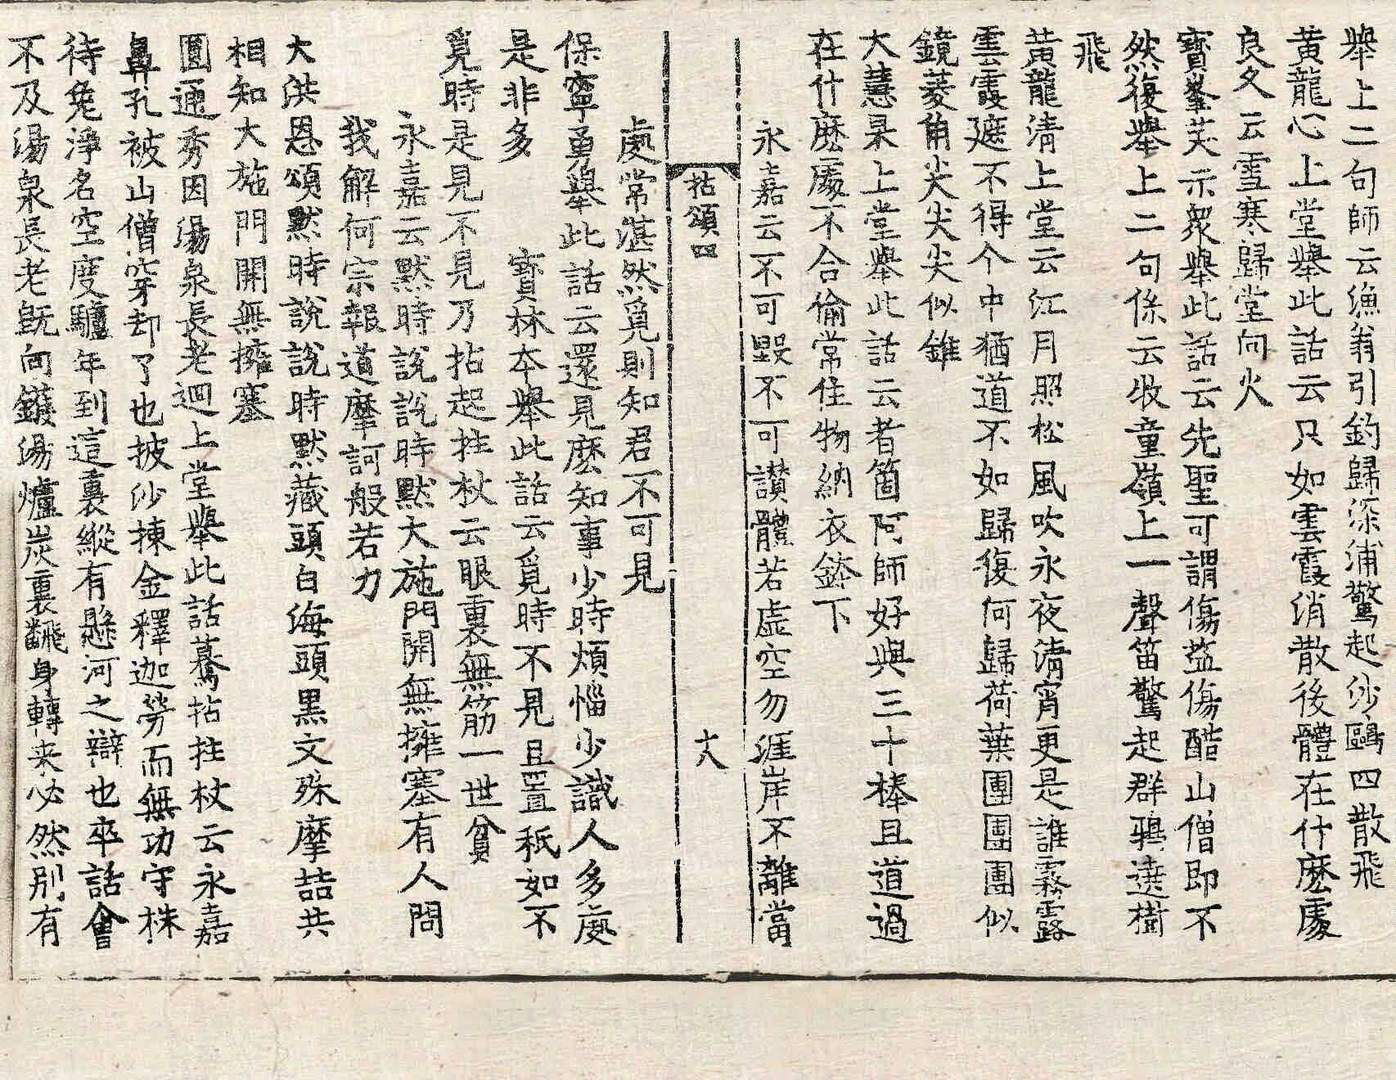 舉上二句師云漁翁引釣歸深浦驚起沙鷗四散飛
黄龍心上堂舉此話云只如雲霞消散後體在什麽處
良久云雪寒歸堂向火
寳峯芙示衆舉此話云先聖可謂傷葢傷醋山僧即不
然復舉上二句係云收童嶺上一聲笛驚起群鵶遶樹
飛
黄龍清上堂云江月照松風吹永夜清宵更是誰霧露
雲霞遮不得个中猶道不如歸復何歸荷葉團團團似
鏡菱角尖尖尖似錐
大慧杲上堂舉此話云者箇阿師好與三十棒且道過
在什麽處不合偷常住物納衣鉢下
永嘉云不可毀不可讃體若虛空勿涯岸不離當
拈頌四
十八
處常湛然覓則知君不可見
保寧勇舉此話云還見麽知事少時煩惱少識人多處
是非多
寳林本舉此話云覓時不見且置秖如不
覓時是見不見乃拈起拄杖云眼裏無筋一世貧
永嘉云默時說說時默大施門開無擁塞有人問
我解何宗報道摩訶般若力
大洪恩頌默時說說時默藏頭白海頭黒文殊摩喆共
相知大施門開無擁塞
圓通秀因湯泉長老迴上堂舉此話驀拈拄杖云永嘉
鼻孔被山僧穿却了也披沙揀金釋迦勞而無功守株
待兔淨名空度驢年到這裏縱有懸河之辯也卒話會
不及湯泉長老旣向鑊湯爐炭裏翻身轉来必然別有